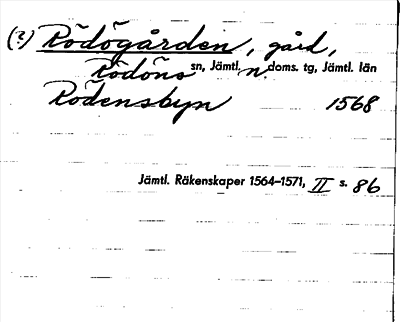 (?) Rödögården, gård,
Rödöns sn, Jämtl. n doms. tg, Jämtl. län
Rödensbyn 1568
Jämtl. Räkenskaper 1564-1571, II s. 86